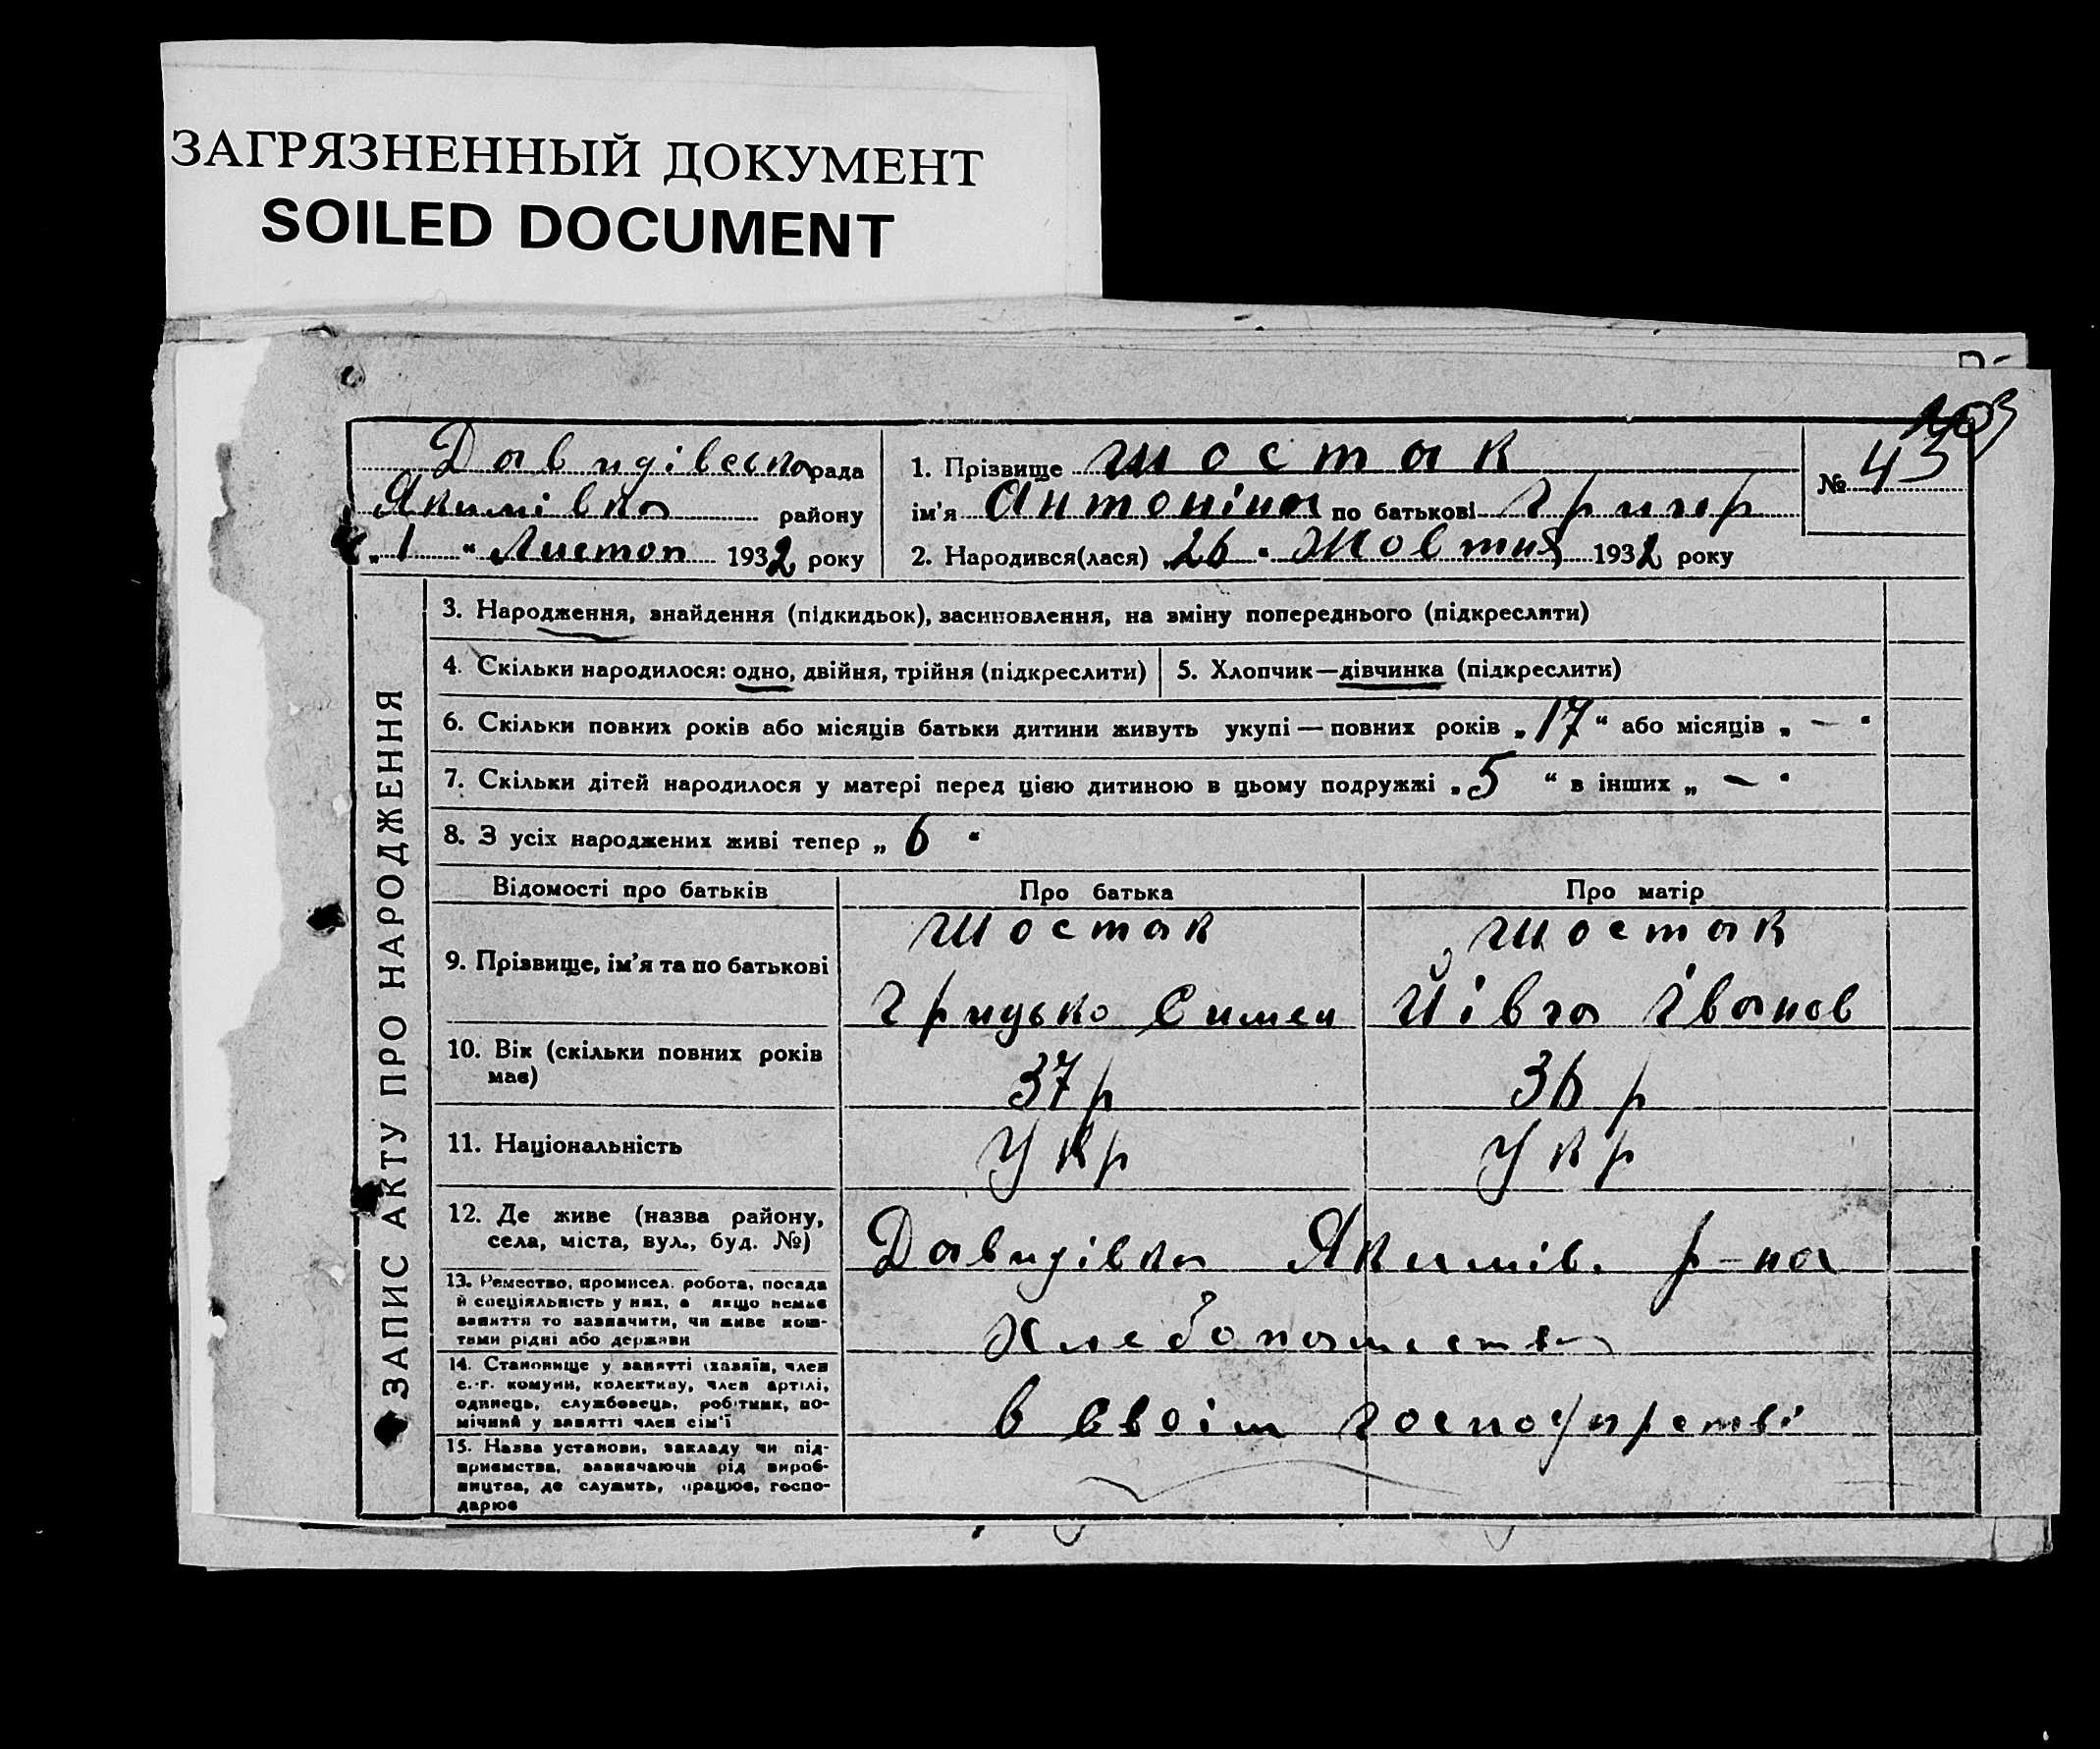 ЗАГРЯЗНЕННЫЙ ДОКУМЕНТ
SOILED DOCUMENT
Давидівська рада
Якимівка району
„ 1 “ Листоп 1932 року
1. Прізвище Шостак
ім'я Антоніна по батькові Григор
2. Народився(лася) „26“ Жовтня 1932 року
№ 43
ЗАПИС АКТУ ПРО НАРОДЖЕННЯ
3. Народження, знайдення (підкидьок), засиновлення, на зміну попереднього (підкреслити)
4. Скільки народилося: одно, двійня, трійня (підкреслити)
5. Хлопчик—дівчинка (підкреслити)
6. Скільки повних років або місяців батьки дитини живуть укупі — повних років „17“ або місяців „ — “
7. Скільки дітей народилося у матері перед цією дитиною в цьому подружжі „5 “ в інших „ — “
8. З усіх народжених живі тепер „ 6 “
Відомості про батьків
Про батька
Про матір
9. Прізвище, ім'я та по батькові
Шостак
Грицько Симен
Шостак
Йівга Іванов
10. Вік (скільки повних років
має)
37 р
36 р
11. Національність
Укр
Укр
12. Де живе (назва району,
села, міста, вул., буд. №)
Давидівка Якимів. р-на
13. Ремество, промисел, робота, посада
й спеціяльність у них, а якщо немає
заняття то зазначити, чи живе кош-
тами рідні або держави
14. Становище у занятті (хазяїн, член
с.-г. комуни, колективу, член артілі,
одинець, службовець, робітник, по-
мічний у занятті член сім'ї
в своім господарстві
15. Назва установи, закладу чи під-
приємства, зазначаючи рід вироб-
ництва, де служить, працює, госпо-
дарює